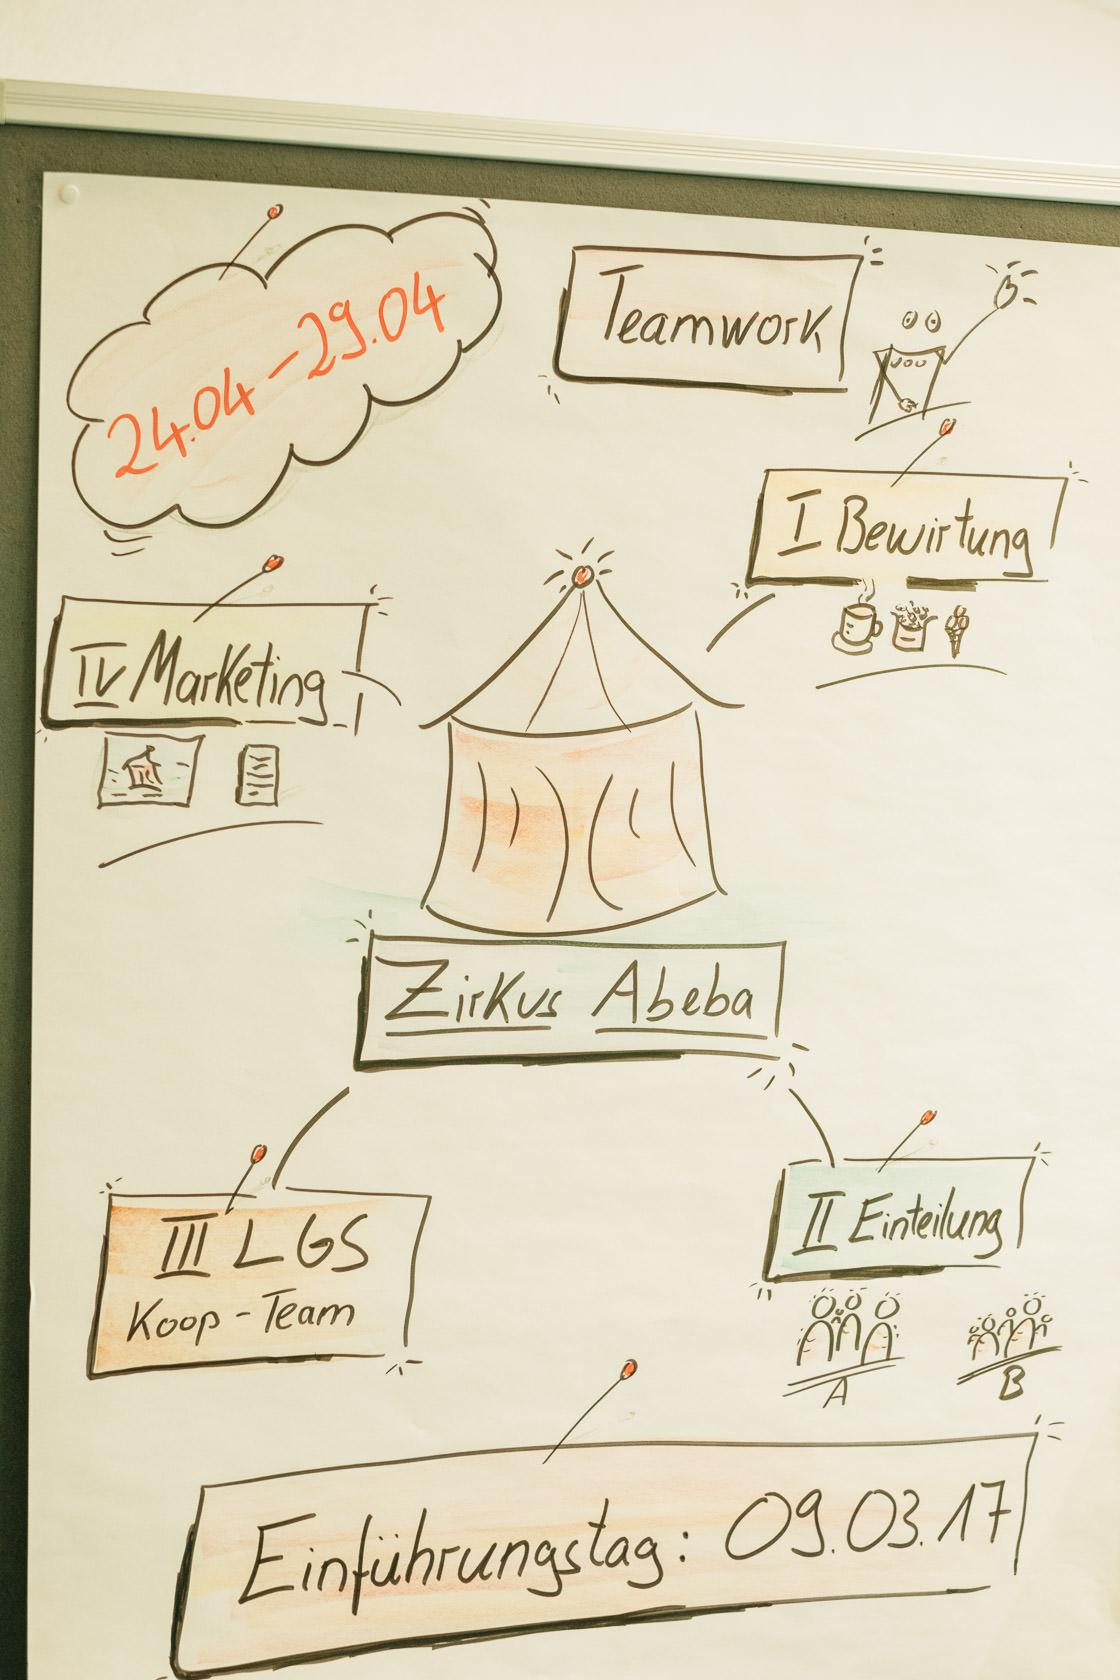 24.04 – 29.04
Teamwork
I Bewirtung
IV Marketing
Zirkus Abeba
III LGS
Koop - Team
II Einteilung
A
B
Einführungstag: 09.03.17